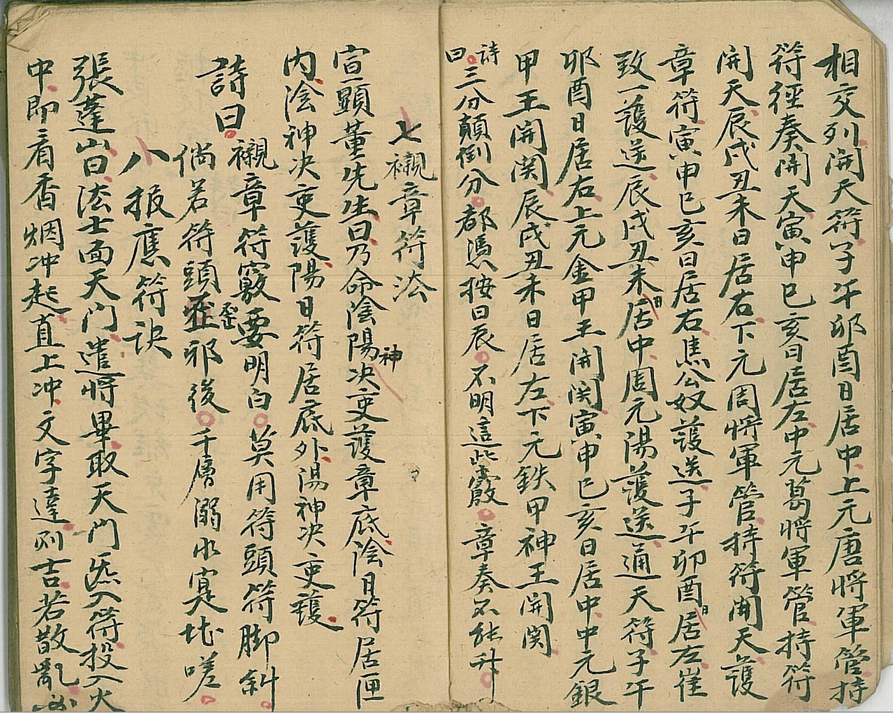 相交列開天符子午卯酉日居中上元唐將軍管持
符徑奏開天寅申巳亥日居左中元葛將軍管持符
開天辰戌丑未日居右下元周將軍管持符開天護
章符寅申巳亥日居右焦公奴護送子午卯酉日居左崔
致一護送辰戌丑未日居中周元陽護送通天符子午
卯酉日居右上元金甲王開関寅申巳亥日居中中元銀
甲王開関辰戌丑未日居左下元鉄甲神王開関
詩曰三分顛倒分都憑按日辰不明這些竅章奏不能升
七襯章符法
宣顯董先生曰乃命陰陽神决吏護章底陰日符居匣
内陰神决吏護陽日符居底外陽神决吏護
詩曰襯章符竅要明白莫用符頭符脚斜
倘若符頭歪邪後千層溺水寞地嗟
八報應符訣
張蓬山曰法士面天門遣將畢取天門炁入符投入火
中即看香烟冲起直上冲文字達則吉若散亂